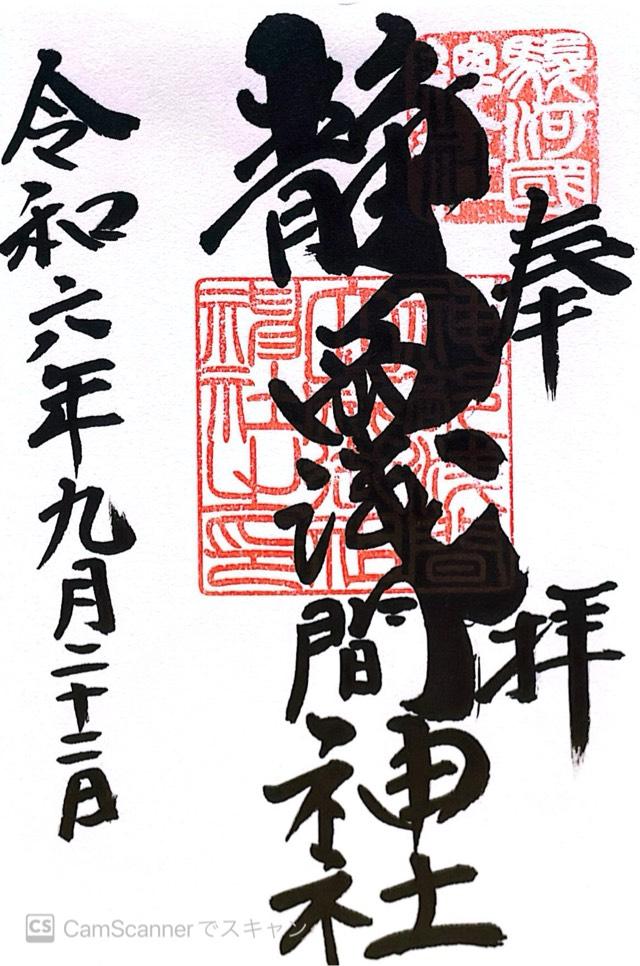 奉拝
駿河國
總社
静岡浅間神社
神部浅間
大歳御祖
神社之印
令和六年九月二十二日
CS CamScannerでスキャン